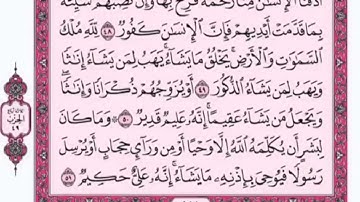 أَذَقْنَا ٱلْإِنسَٰنَ مِنَّا رَحْمَةً فَرِحَ بِهَا وَإِن تُصِبْهُمْ سَيِّئَةٌۢ
بِمَا قَدَّمَتْ أَيْدِيهِمْ فَإِنَّ ٱلْإِنسَٰنَ كَفُورٌ ٤٨ لِّلَّهِ مُلْكُ
ٱلسَّمَٰوَٰتِ وَٱلْأَرْضِ ۚ يَخْلُقُ مَا يَشَآءُ ۚ يَهَبُ لِمَن يَشَآءُ إِنَٰثًا
وَيَهَبُ لِمَن يَشَآءُ ٱلذُّكُورَ ٤٩ أَوْ يُزَوِّجُهُمْ ذُكْرَانًا وَإِنَٰثًا ۖ
وَيَجْعَلُ مَن يَشَآءُ عَقِيمًا ۚ إِنَّهُۥ عَلِيمٌ قَدِيرٌ ٥٠ وَمَا كَانَ
لِبَشَرٍ أَن يُكَلِّمَهُ ٱللَّهُ إِلَّا وَحْيًا أَوْ مِن وَرَآئِ حِجَابٍ أَوْ يُرْسِلَ
رَسُولًا فَيُوحِىَ بِإِذْنِهِۦ مَا يَشَآءُ ۚ إِنَّهُۥ عَلِىٌّ حَكِيمٌ ٥١
الحزب
٤٩